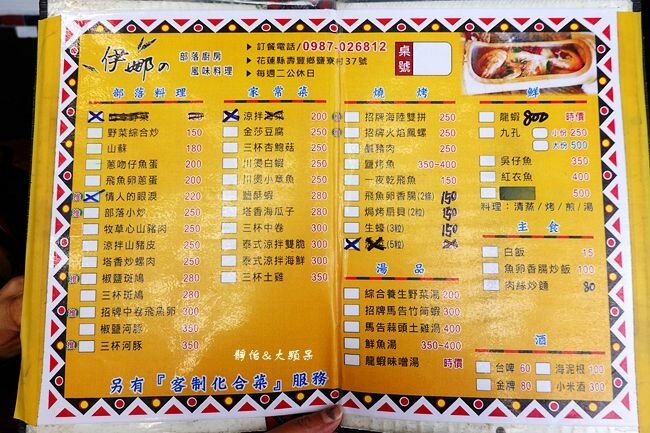 伊娜の
部落廚房
風味料理
訂餐電話/0987-026812
花蓮縣壽豐鄉鹽寮村37號
每週二公休日
桌號
部落料理
野菜綜合炒 150
山蘇 180
蔥吻仔魚蛋 200
飛魚卵蔥蛋 200
情人的眼淚 220
部落小炒 220
牧草心山豬肉 250
涼拌山豬皮 250
塔香炒螺肉 250
椒鹽斑鳩 280
三杯斑鳩 280
招牌中卷飛魚卵 300
椒鹽河豚 350
三杯河豚 350
家常菜
涼拌 200
金莎豆腐 250
三杯杏鮑菇 250
川燙白蝦 250
川燙小章魚 250
鹽酥蝦 280
塔香海瓜子 280
三杯中卷 300
泰式涼拌雙脆 300
泰式涼拌海鮮 300
三杯土雞 350
靜怡&大顆呆
另有『客制化合菜』服務
燒烤
招牌海陸雙拼 250
招牌火焰鳳螺 250
鹹豬肉 250
鹽烤魚 350-400
一夜乾飛魚 150
飛魚卵香腸(2條) 150
焗烤扇貝(2粒) 150
生蠔(3粒) 150
(5粒)
湯品
綜合養生野菜湯 200
招牌馬告竹筒蝦 300
馬告蒜頭土雞湯 400
鮮魚湯 350-400
龍蝦味噌湯 時價
鮮
龍蝦 800 時價
九孔 小份 250
大份 500
吳仔魚 350
紅衣魚 400
500
料理：清蒸/烤/煎/湯
主食
白飯 15
魚卵香腸炒飯 100
肉絲炒麵 80
酒
台啤 60 海泥根 100
金牌 80 小米酒 300